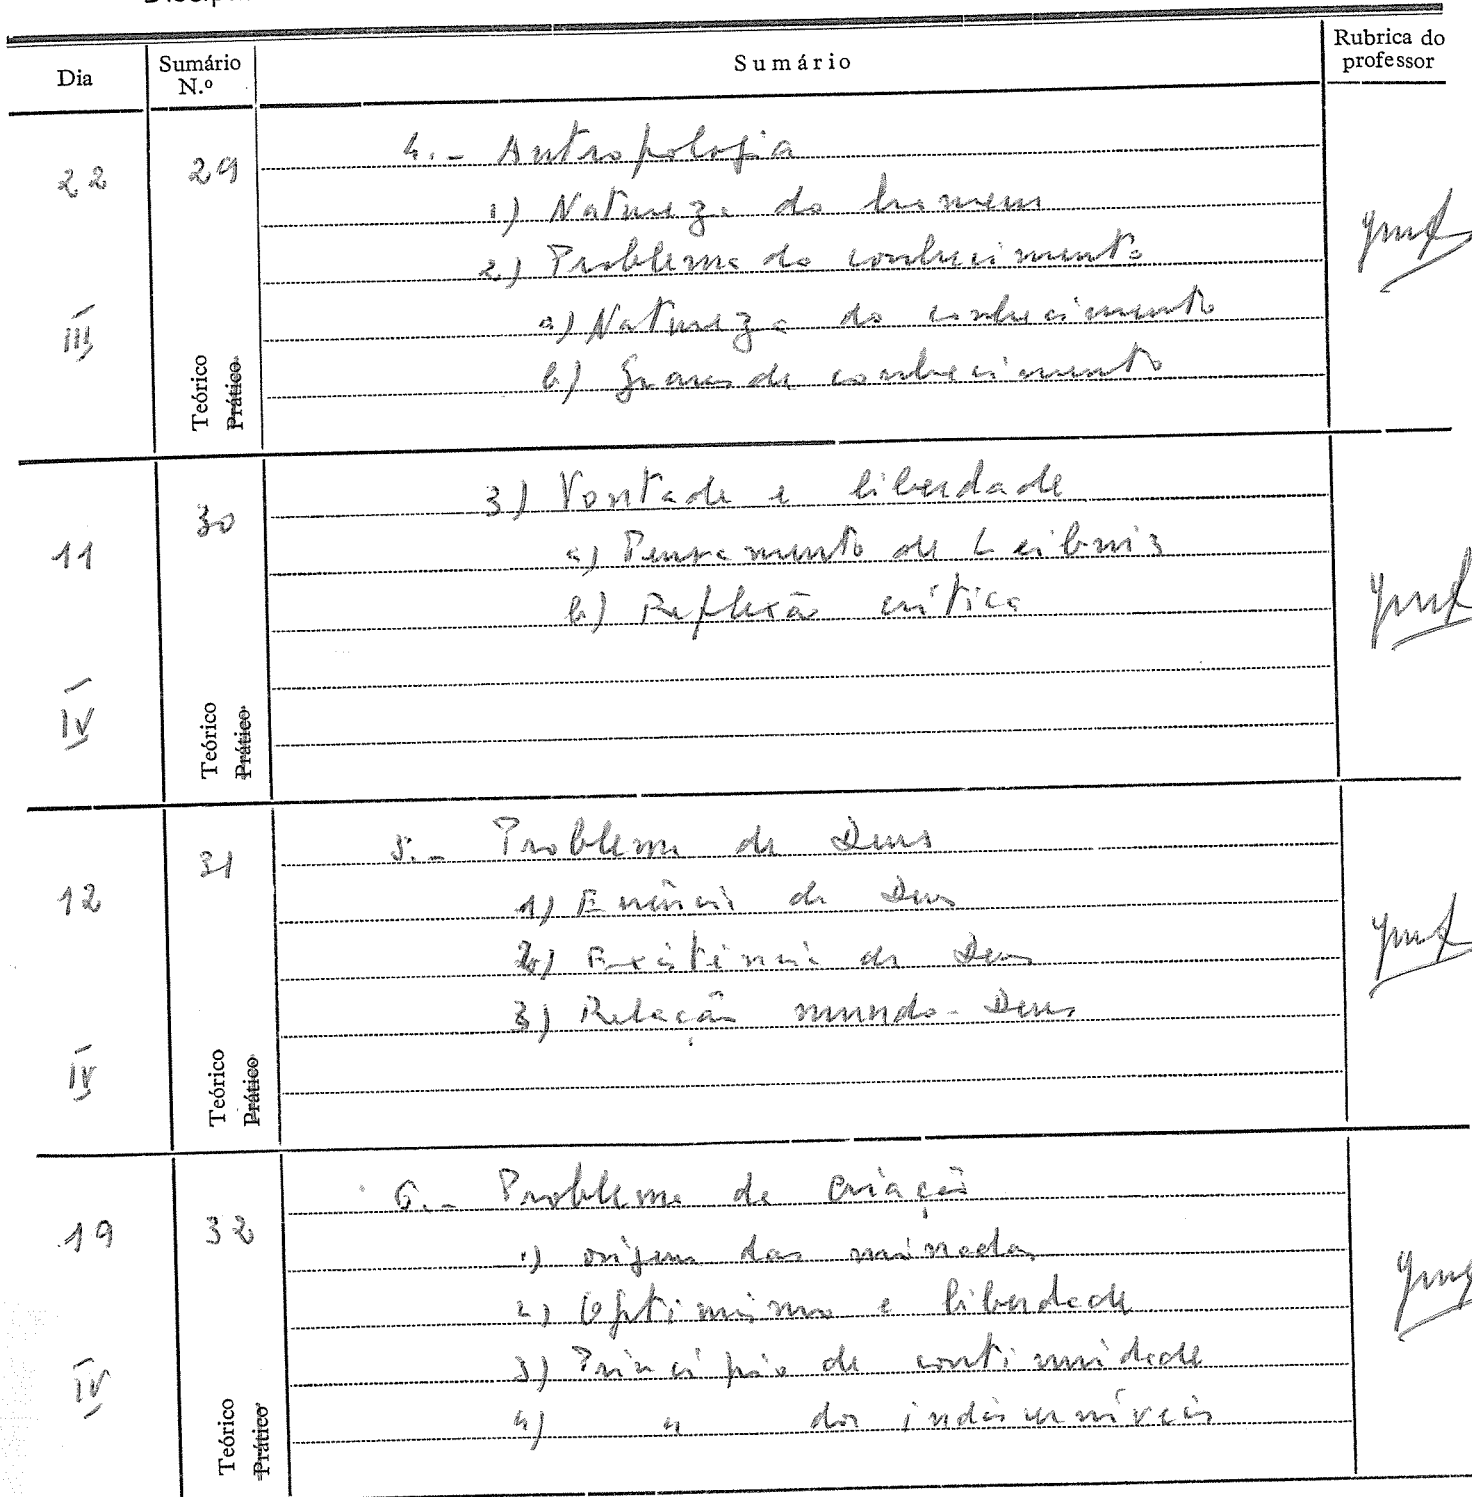 Dia
Sumário N.º
Sumário
Rubrica do professor
22
III
29
Teórico
Prático
4.- Antropologia
1) Natureza do homem
2) Problema do conhecimento
a) Natureza do conhecimento
b) Graus de conhecimento
11
IV
30
Teórico
Prático
3) Vontade e liberdade
a) Pensamento de Leibniz
b) Reflexão crítica
12
IV
31
Teórico
Prático
5.- Problema de Deus
1) Essência de Deus
2) Existência de Deus
3) Relação mundo-Deus
19
IV
32
Teórico
Prático
6.- Problema da criação
1) origem das mónadas
2) Optimismo e liberdade
3) Princípio de continuidade
4) " dos indiscerníveis